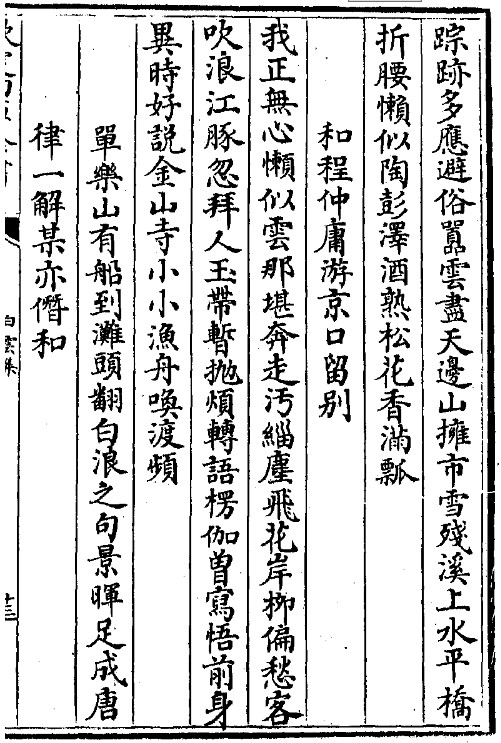 踪跡多應避俗囂雲盡天邊山擁市雪殘溪上水平橋
折腰懶似陶彭澤酒熟松花香滿瓢
和程仲庸游京口留别
我正無心懶似雲那堪奔走汚緇塵飛花岸柳偏愁客
吹浪江豚忽拜人玉帶暫抛煩轉語楞伽曽寫悟前身
異時好説金山寺小小漁舟喚渡頻
單樂山有船到灘頭翻白浪之句景暉足成唐
律一解某亦僭和
白雲集